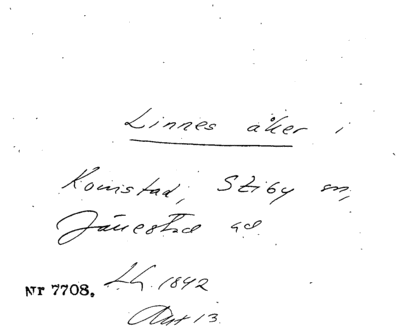 Linnes åker i
Komstad, Stiby sn,
Järrestad hd
LG. 1842
Nr 7708.
Akt 13.